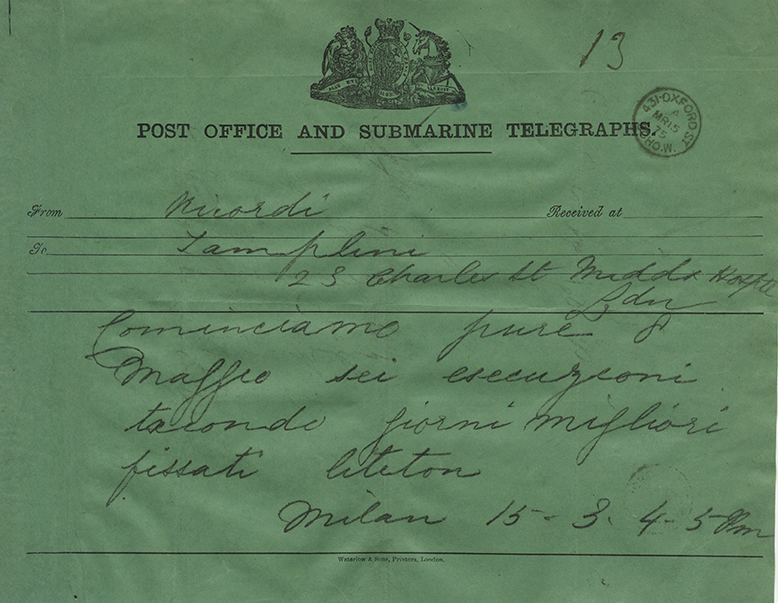 13
POST OFFICE AND SUBMARINE TELEGRAPHS.
431·OXFORD ST
A
MR15
75
W.O
From Ricordi Received at
To Tamplini
23 Charles St Middx Hospitl
Ldn
Cominciamo pure 8
Maggio sei esecuzioni
giorni migliori
fissati
Milan 15 - 3. 4-5 Pm
Waterlow & Sons, Printers, London.